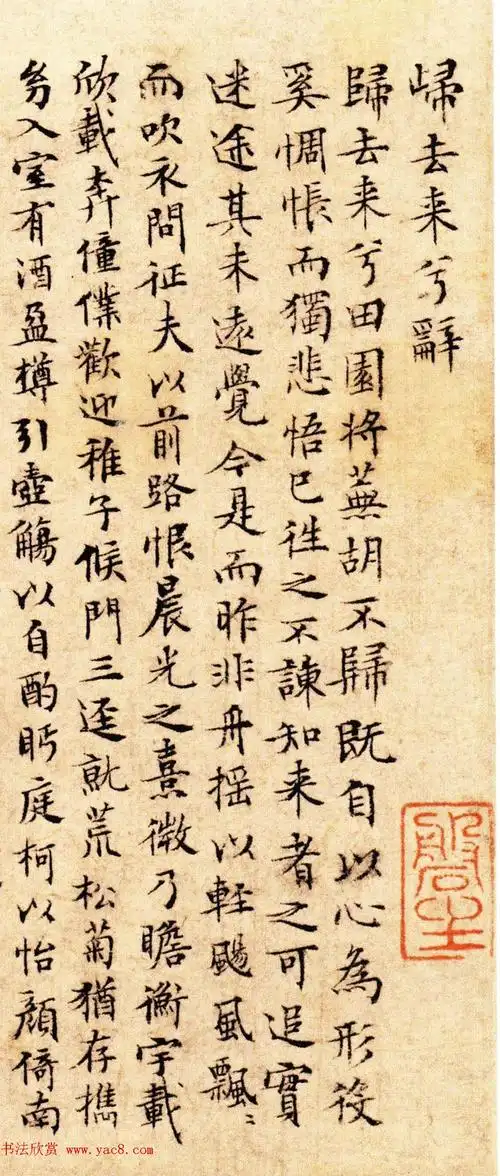 歸去来兮辭
歸去来兮田園将蕪胡不歸既自以心為形役
奚惆悵而獨悲悟已往之不諫知来者之可追實
迷途其未遠覺今是而昨非舟摇以軽颺風飄〻
而吹衣問征夫以前路恨晨光之熹微乃瞻衡宇載
欣載奔僮僕歡迎稚子候門三逕就荒松菊猶存携
幼入室有酒盈樽引壺觴以自酌眄庭柯以怡顔倚南
书法欣赏 www.yac8.com